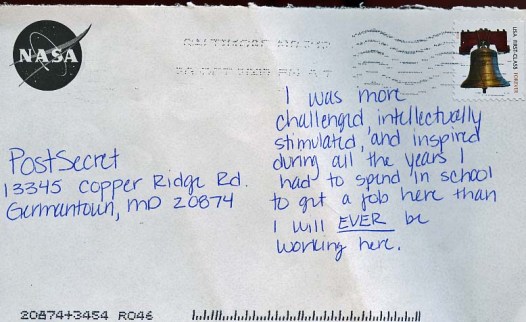 NASA
BALTIMORE MD 212
USA FIRST-CLASS FOREVER
I was more
challenged, intellectually
stimulated, and inspired
during all the years I
had to spend in school
to get a job here than
I will EVER be
working here.
PostSecret
13345 Copper Ridge Rd.
Germantown, MD 20874
20874+3454 R046